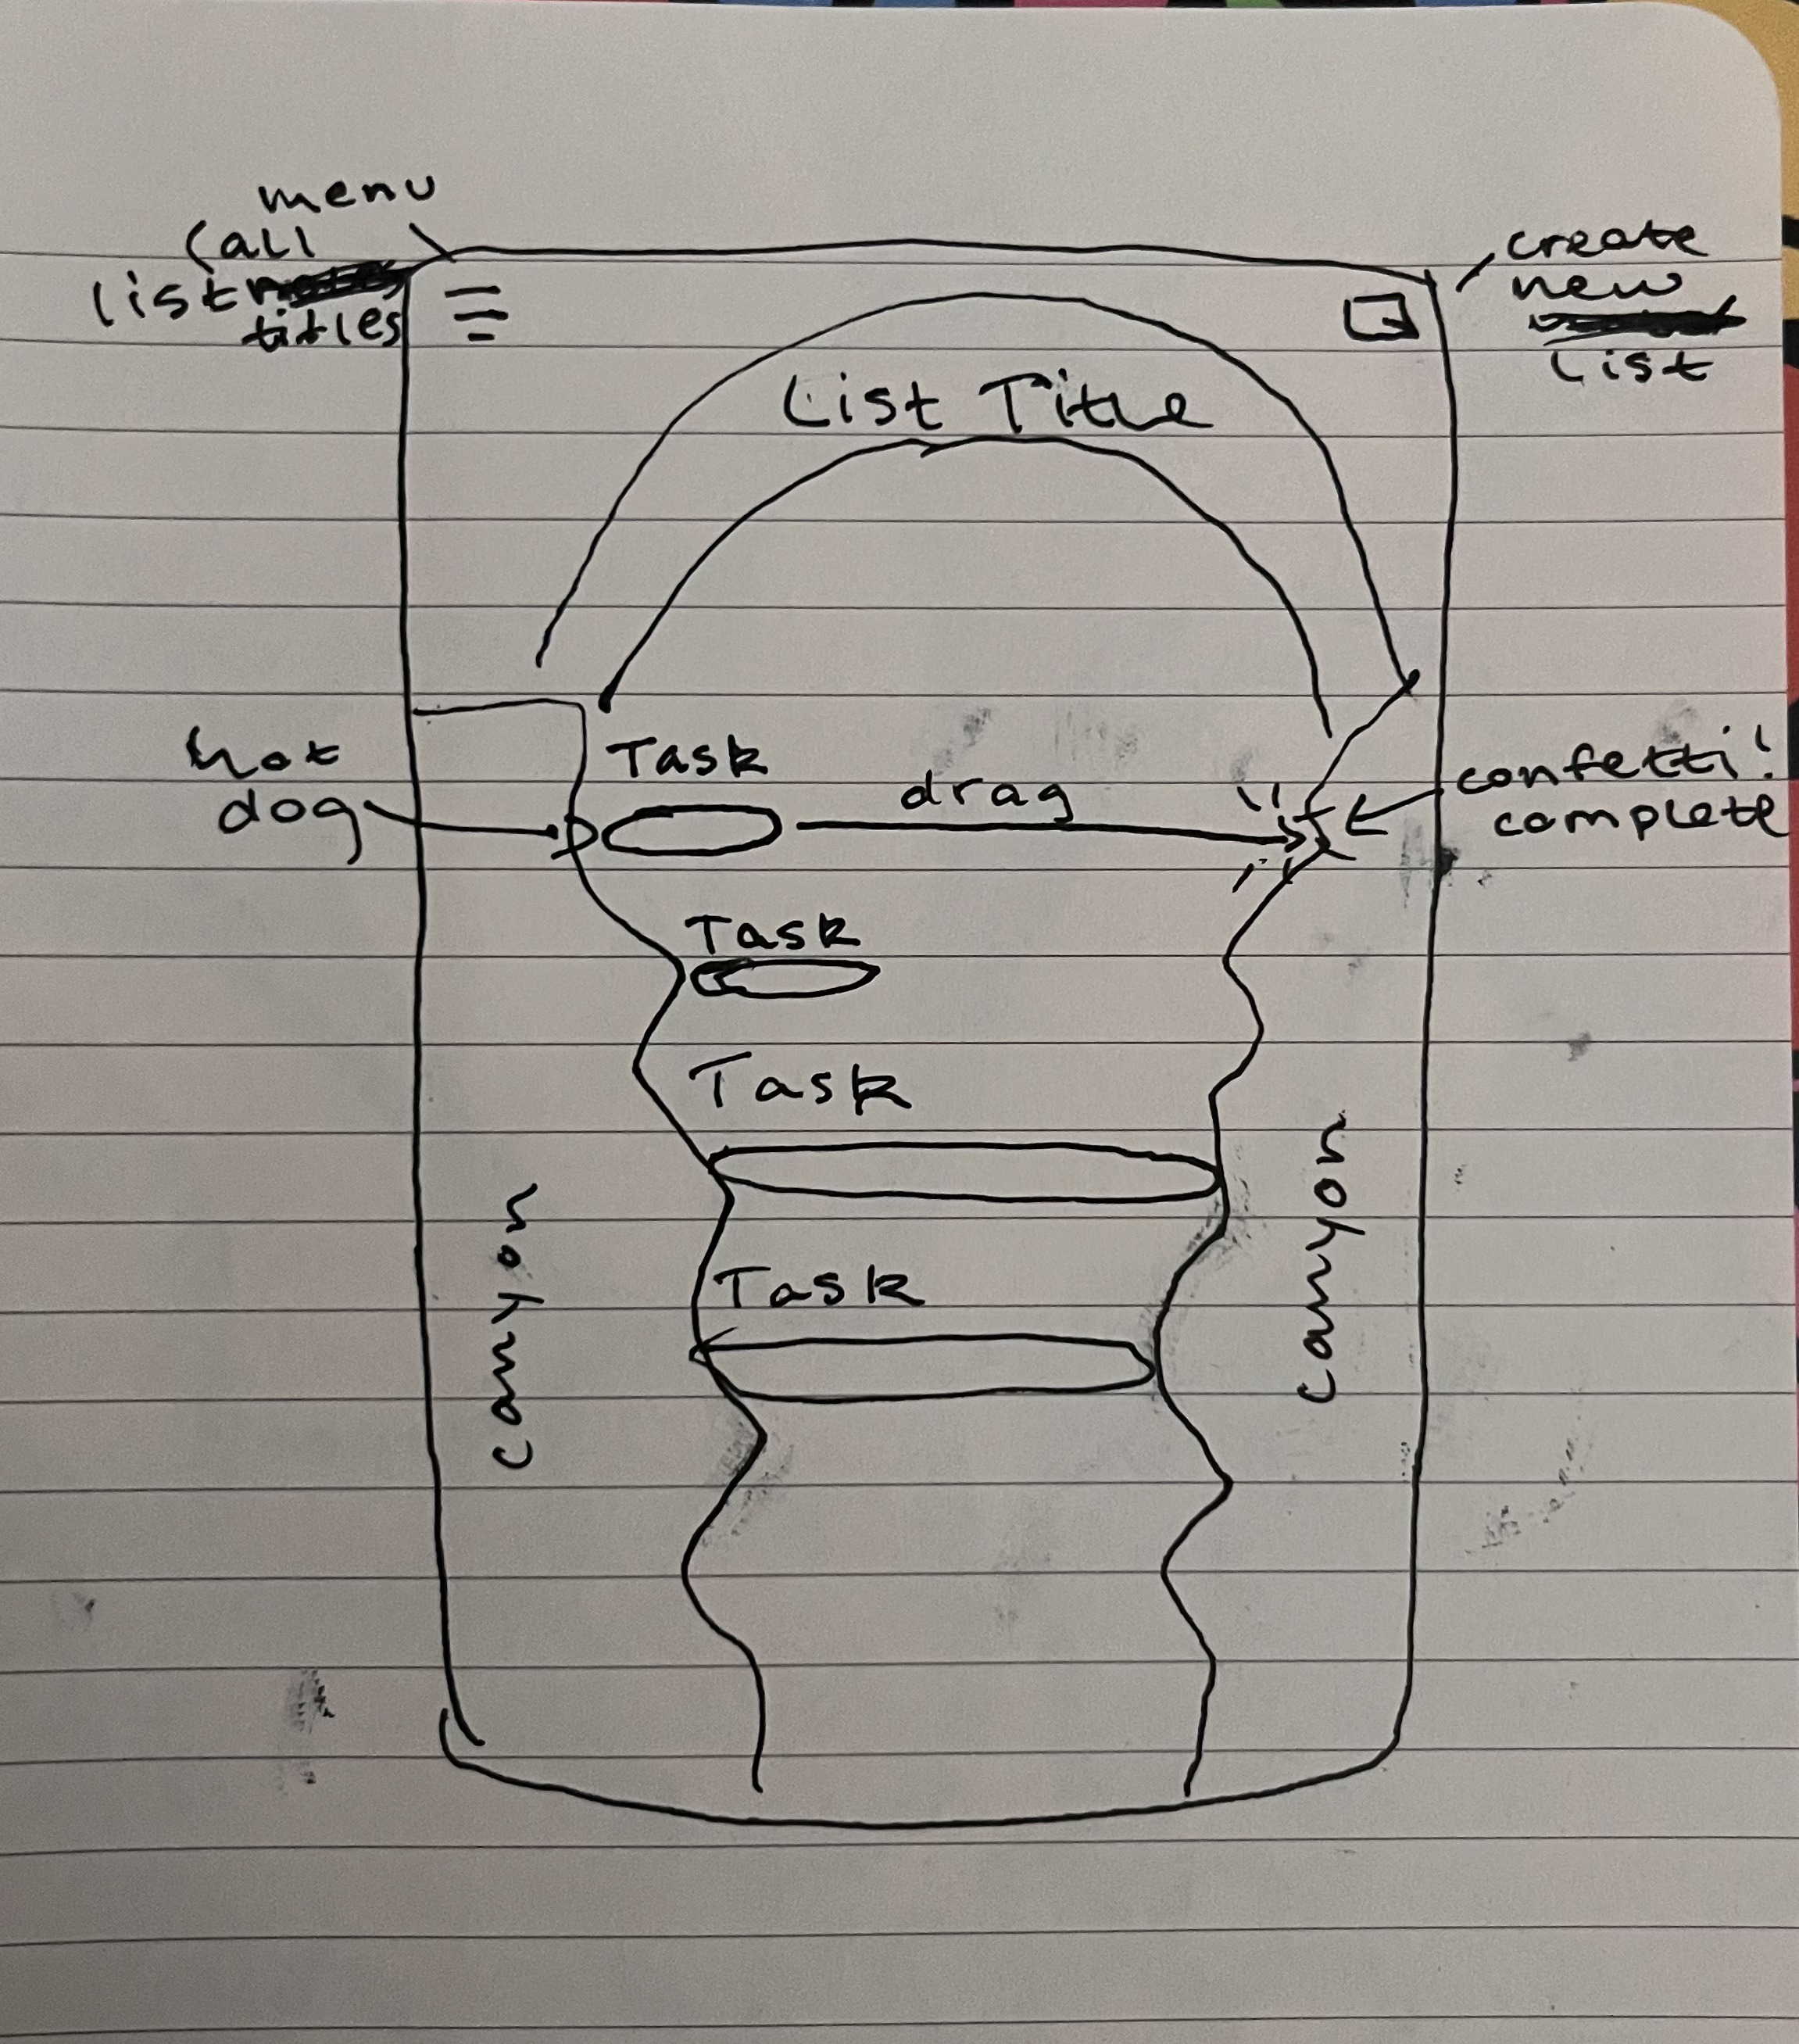 menu
(all
list
titles
create
new
list
List Title
hot
dog
Task
drag
confetti!
complete
Task
Task
Task
canyon
canyon